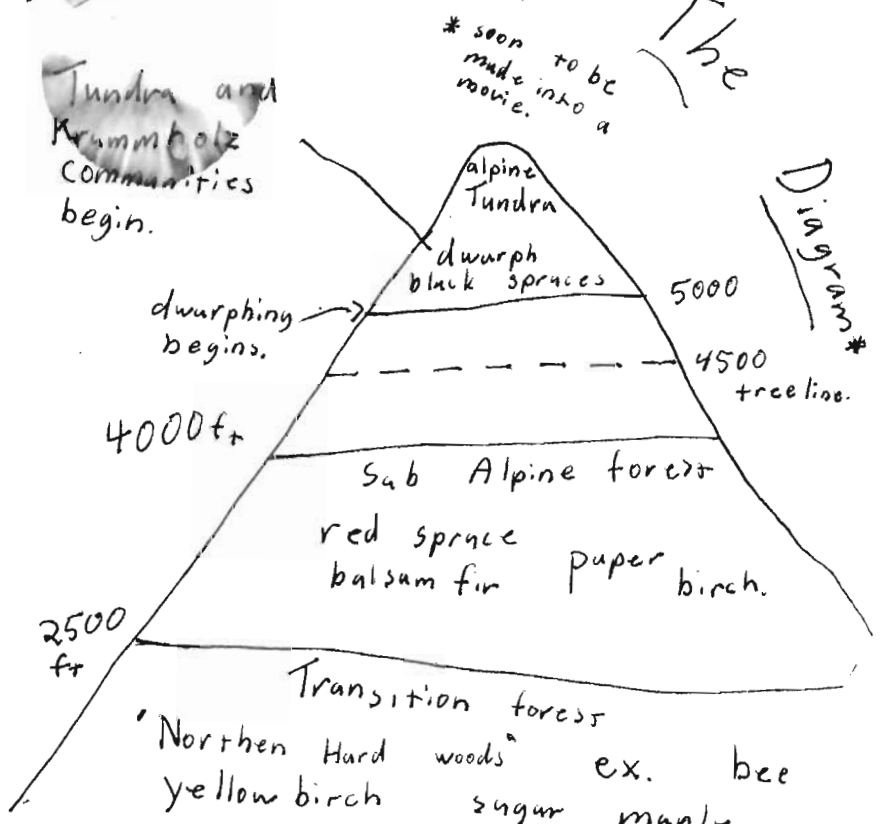 The
Diagram*
* soon to be
made into a
movie.
Tundra and
Krummholz
Communities
begin.
alpine
Tundra
dwurph
black spruces
5000
dwurphing
begins.
4500
treeline.
4000 ft
Sub Alpine forest
red spruce
balsum fir paper birch.
2500
ft
Transition forest
"Northen Hard woods" ex. bee
yellow birch sugar maple